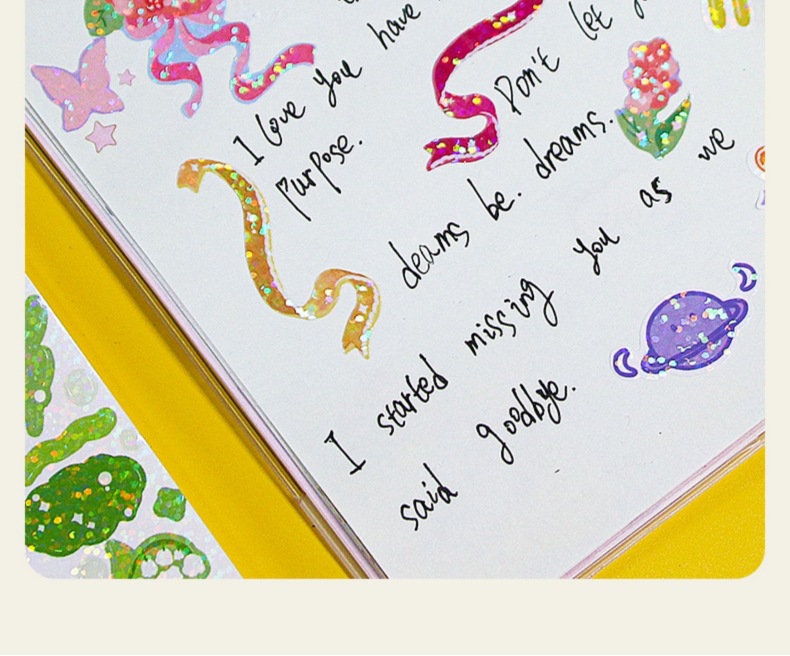 have
I love you
purpose.
Don't let
deams be. dreams.
I started missing you as we
said goodbye.